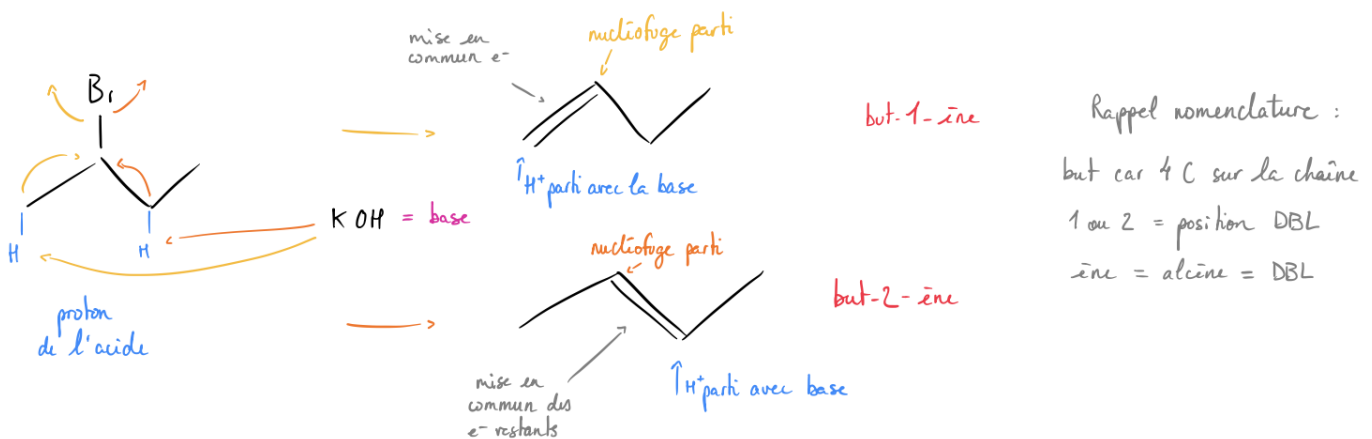 Br
H
H
proton
de l'acide
KOH = base
mise en
commun e-
nucléofuge parti
↑H+ parti avec la base
but-1-ène
nucléofuge parti
mise en
commun des
e- restants
↑H+ parti avec base
but-2-ène
Rappel nomenclature :
but car 4 C sur la chaîne
1 ou 2 = position DBL
ène = alcène = DBL